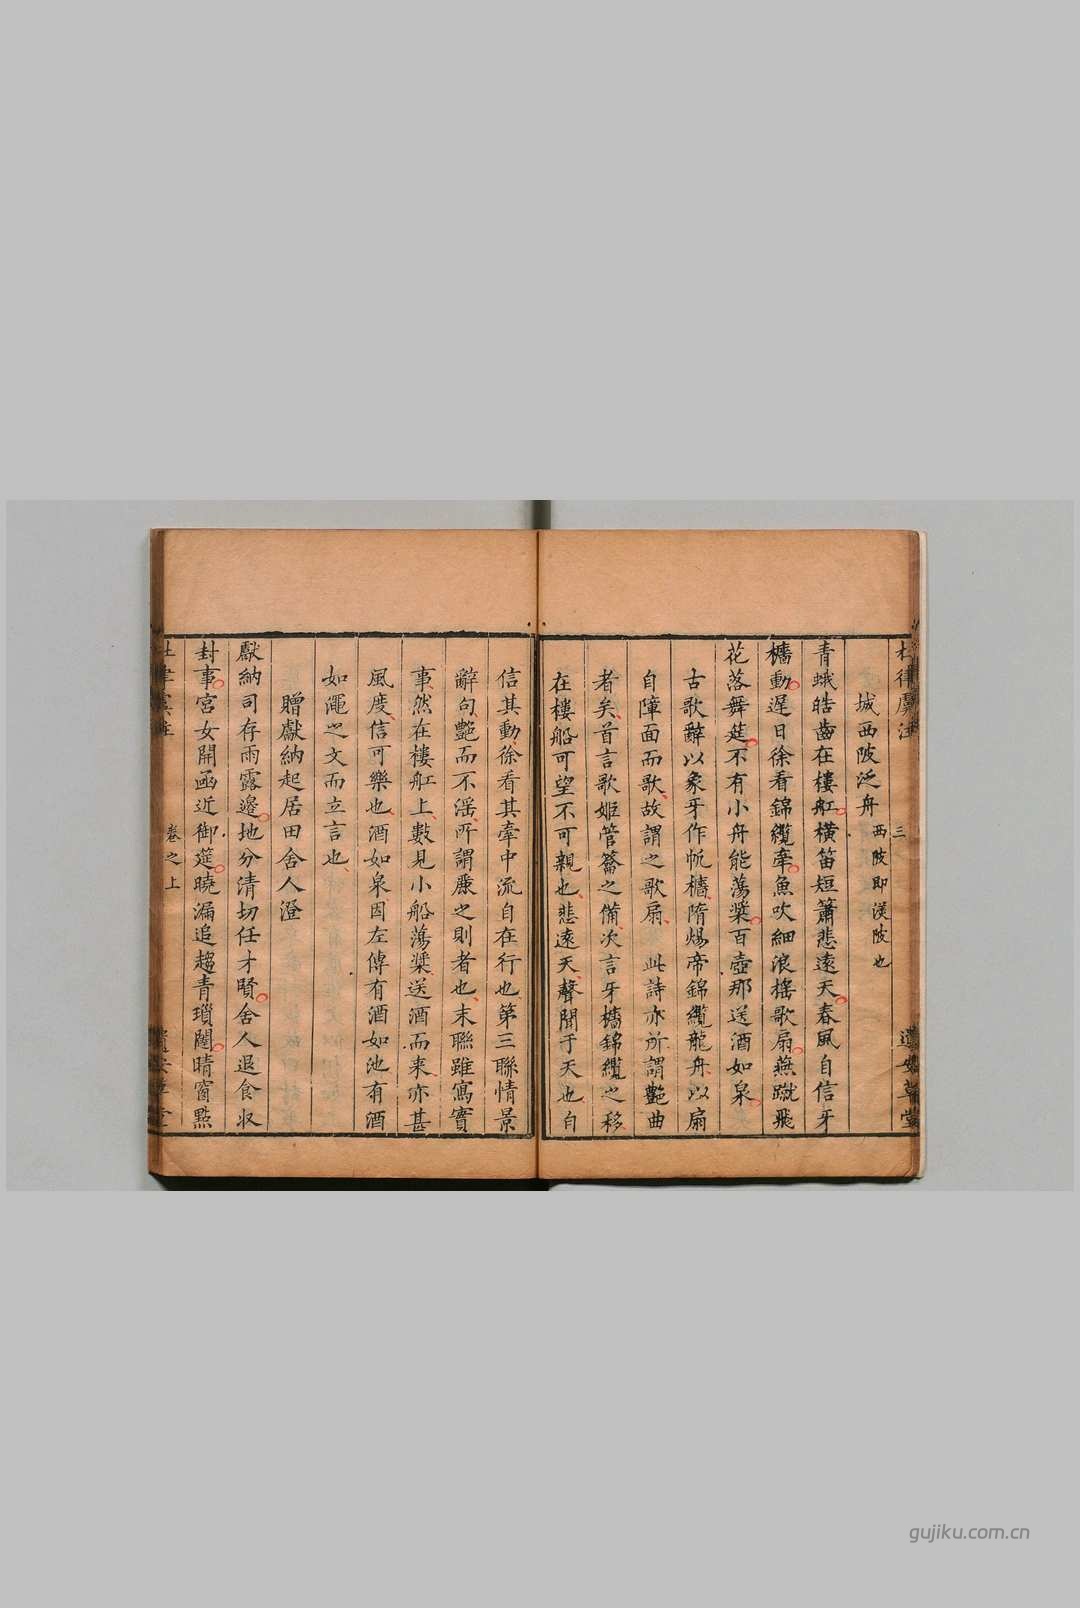 杜律虞註
三
城西陂泛舟 西陂即渼陂也
青蛾皓齒在樓舡橫笛短簫悲遠天春風自信牙
檣動遲日徐看錦纜牽魚吹細浪搖歌扇燕蹴飛
花落舞筵不有小舟能蕩槳百壺那送酒如泉
古歌辭以象牙作帆檣隋煬帝錦纜龍舟以扇
自障面而歌故謂之歌扇 此詩亦所謂艷曲
者矣首言歌姬管籥之備次言牙檣錦纜之移
在樓船可望不可親也悲遠天聲聞于天也自
信其動徐看其牽中流自在行也第三聯情景
辭句艷而不滛所謂麗之則者也末聯雖寫實
事然在樓舡上數見小船蕩槳送酒而来亦甚
風度信可樂也酒如泉因左傳有酒如池有酒
如澠之文而立言也
贈獻納起居田舍人澄
獻納司存雨露邊地分清切任才賢舍人退食收
封事宮女開函近御筵曉漏追趨青瑣闥晴窗點
卷之上
gujiku.com.cn